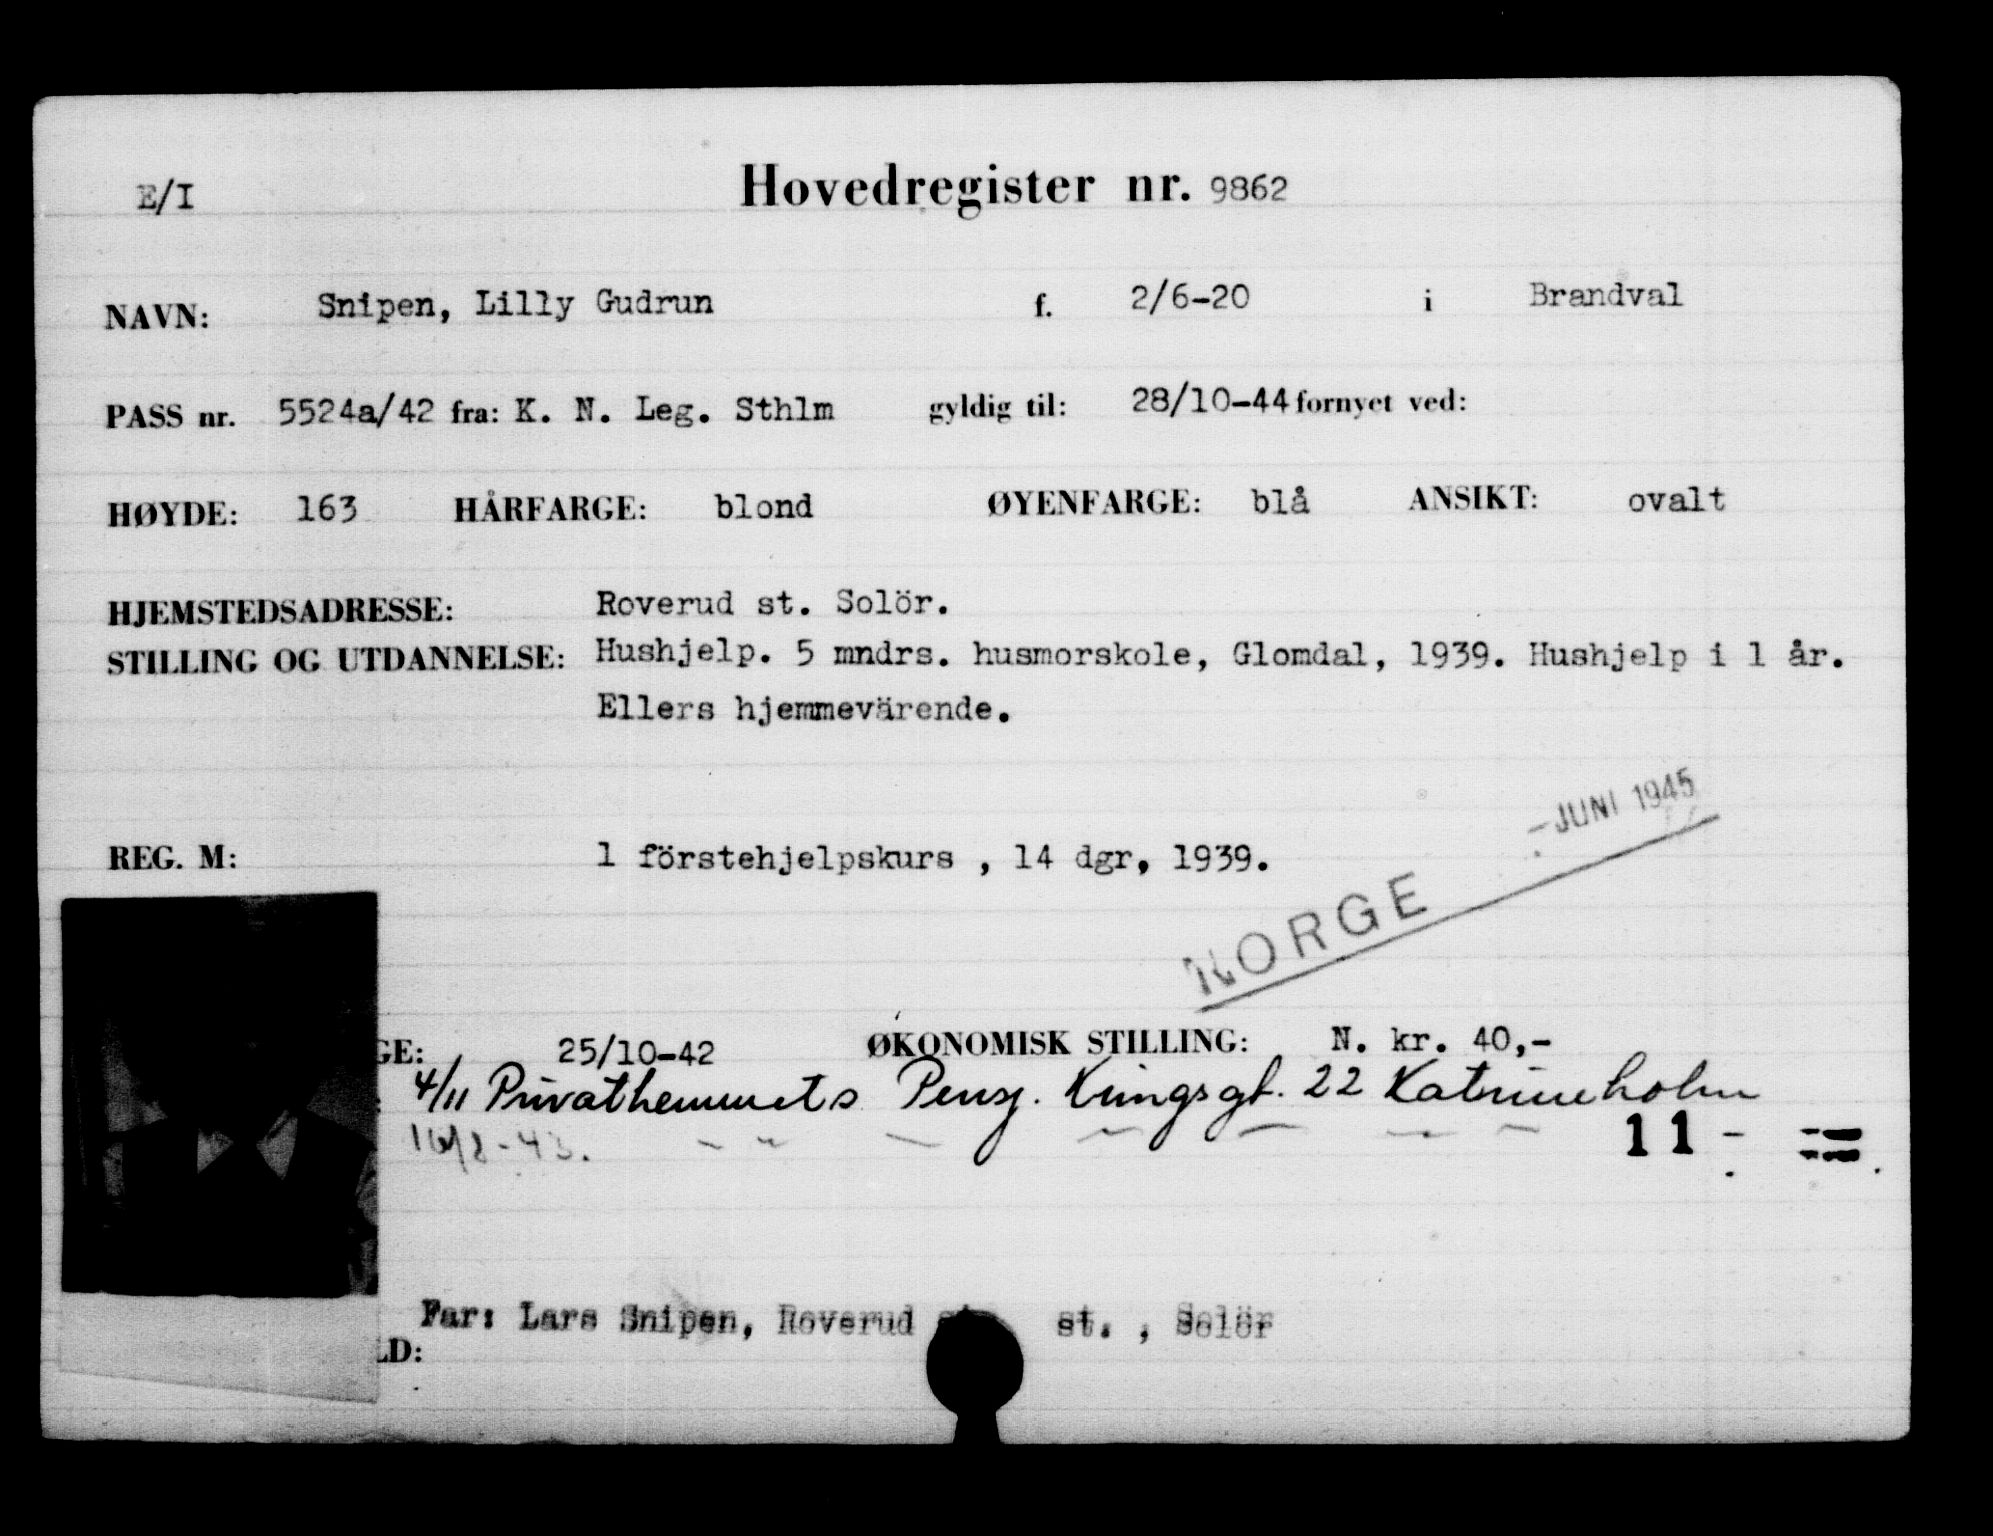 E/I
Hovedregister nr. 9862
NAVN: Snipen, Lilly Gudrun f. 2/6-20 i Brandval
PASS nr. 5524a/42 fra: K. N. Leg. Sthlm gyldig til: 28/10-44 fornyet ved:
HØYDE: 163 HÅRFARGE: blond ØYENFARGE: blå ANSIKT: ovalt
HJEMSTEDSADRESSE: Roverud st. Solör.
STILLING OG UTDANNELSE: Hushjelp. 5 mndrs. husmorskole, Glomdal, 1939. Hushjelp i 1 år.
Ellers hjemmevärende.
- JUNI 1945
REG. M: 1 förstehjelpskurs , 14 dgr, 1939.
NORGE
GE: 25/10-42 ØKONOMISK STILLING: N. kr. 40,-
4/11 Privathemmets Pensj. Kungsgt. 22 Katrineholm
11 -
Far: Lars Snipen, Roverud st. , Solör
LD: